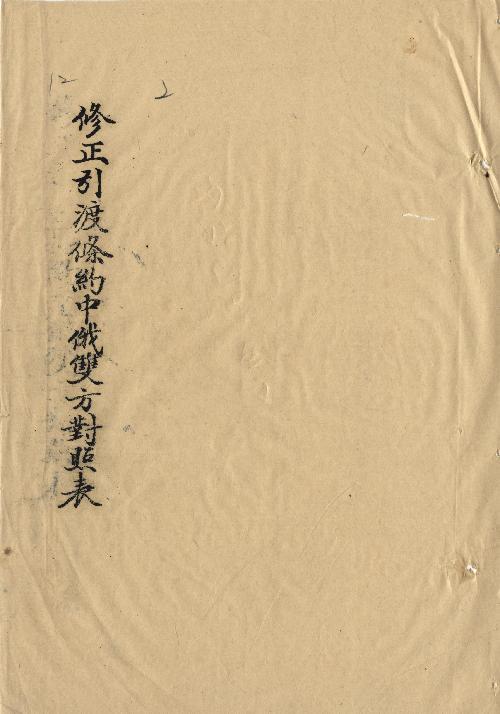 12
2
修正引渡條約中俄雙方對照表